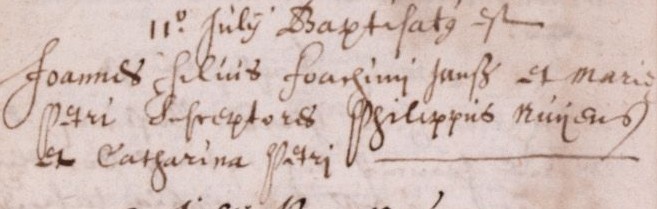 11º Julij Baptisatus est
Joannes filius Joachimi Janss et Marie
Petri Susceptores Philippus Ruijens
et Catharina Petri